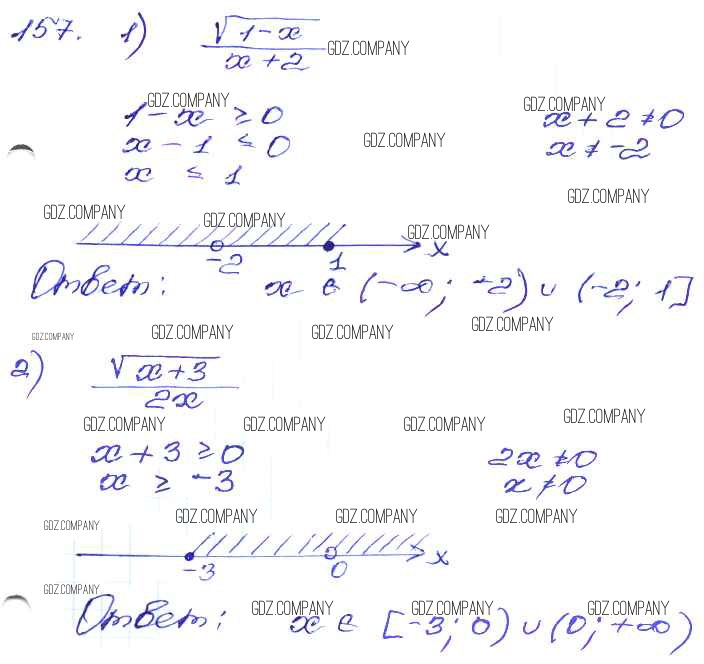 157. 1) √(1-x)
x+2 GDZ.COMPANY
GDZ.COMPANY GDZ.COMPANY
1-x ≥ 0 x+2≠0
x-1 ≤ 0 GDZ.COMPANY x≠-2
x ≤ 1
GDZ.COMPANY
GDZ.COMPANY GDZ.COMPANY GDZ.COMPANY
-2 1 x
Ответ: x ∈ (-∞; -2) ∪ (-2; 1]
GDZ.COMPANY GDZ.COMPANY GDZ.COMPANY GDZ.COMPANY
2) √(x+3)
2x
GDZ.COMPANY GDZ.COMPANY GDZ.COMPANY GDZ.COMPANY
x+3 ≥ 0 2x≠0
x ≥ -3 x≠0
GDZ.COMPANY GDZ.COMPANY GDZ.COMPANY GDZ.COMPANY
-3 0 x
GDZ.COMPANY
GDZ.COMPANY GDZ.COMPANY GDZ.COMPANY
Ответ: x ∈ [-3; 0) ∪ (0; +∞)